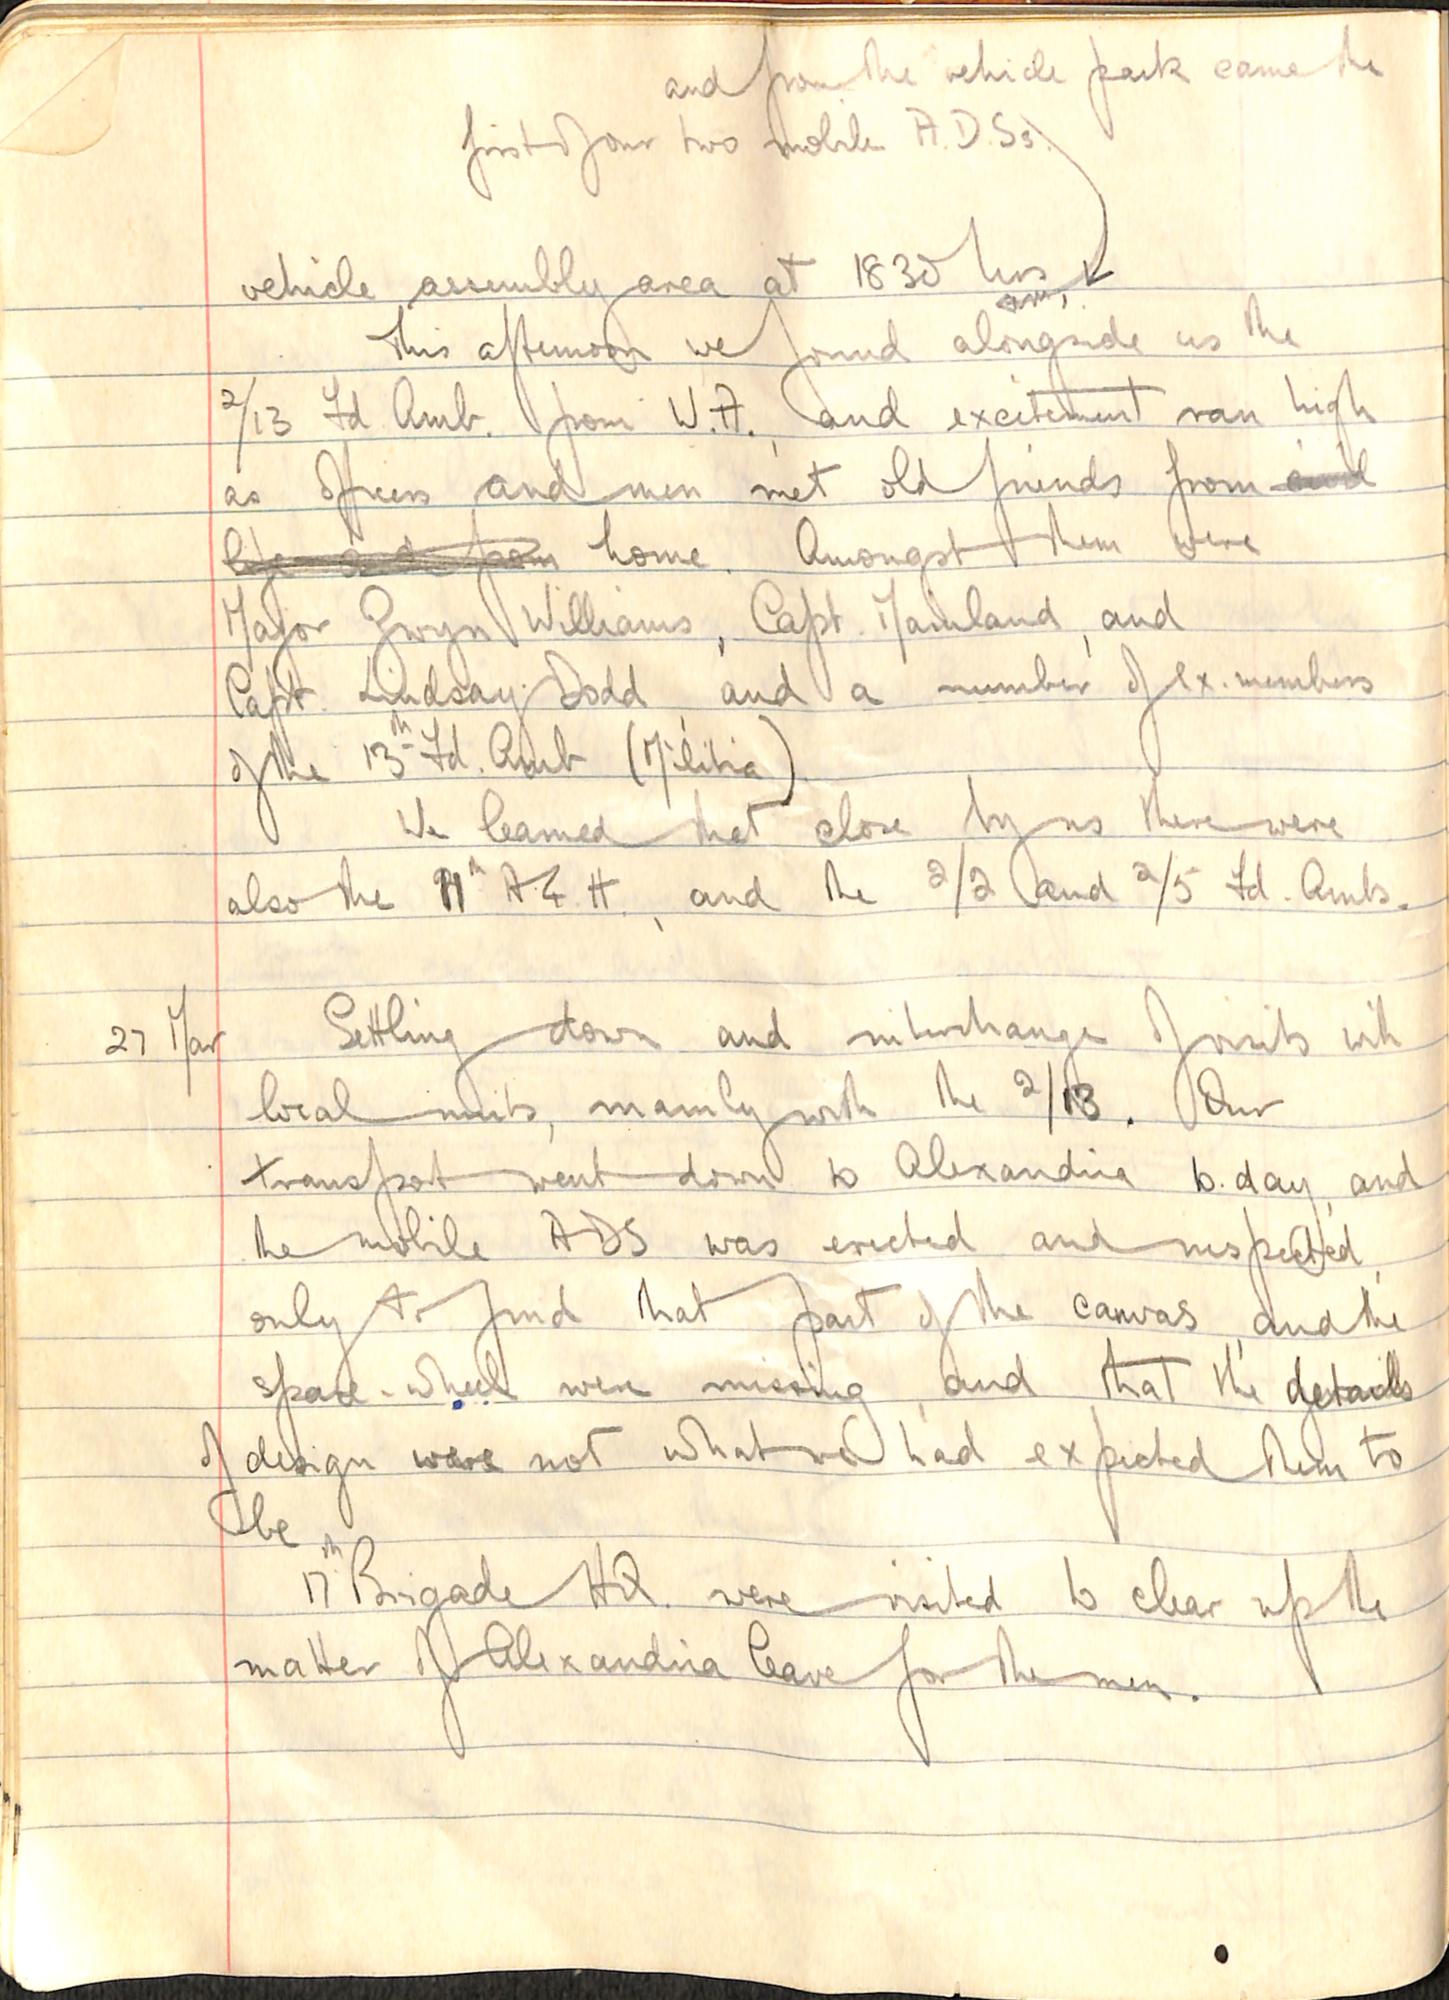 and from the vehicle park came the
first of our two mobile A.D.Ss.
vehicle assembly area at 1830 hrs
This afternoon we found alongside us the
2/13 Fd Amb. from W.A., and excitement ran high
as officers and men met old friends from civil
life and from home. Amongst them were
Major Gwyn Williams, Capt. Mainland, and
Capt. Lindsay Dodd, and a number of ex. members
of the 13th Fd. Amb (Militia).
We learned that close by us there were
also the 11th A.G.H., and the 2/2 and 2/5 Fd. Ambs.
27 Mar Settling down and interchange of visits with
local units, mainly with the 2/13. Our
transport went down to Alexandria to.day, and
the mobile ADS was erected and inspected,
only to find that part of the canvas, and the
spare-wheel were missing, and that the details
of design were not what we had expected them to
be
17th Brigade HQ. were visited to clear up the
matter of Alexandria leave for the men.